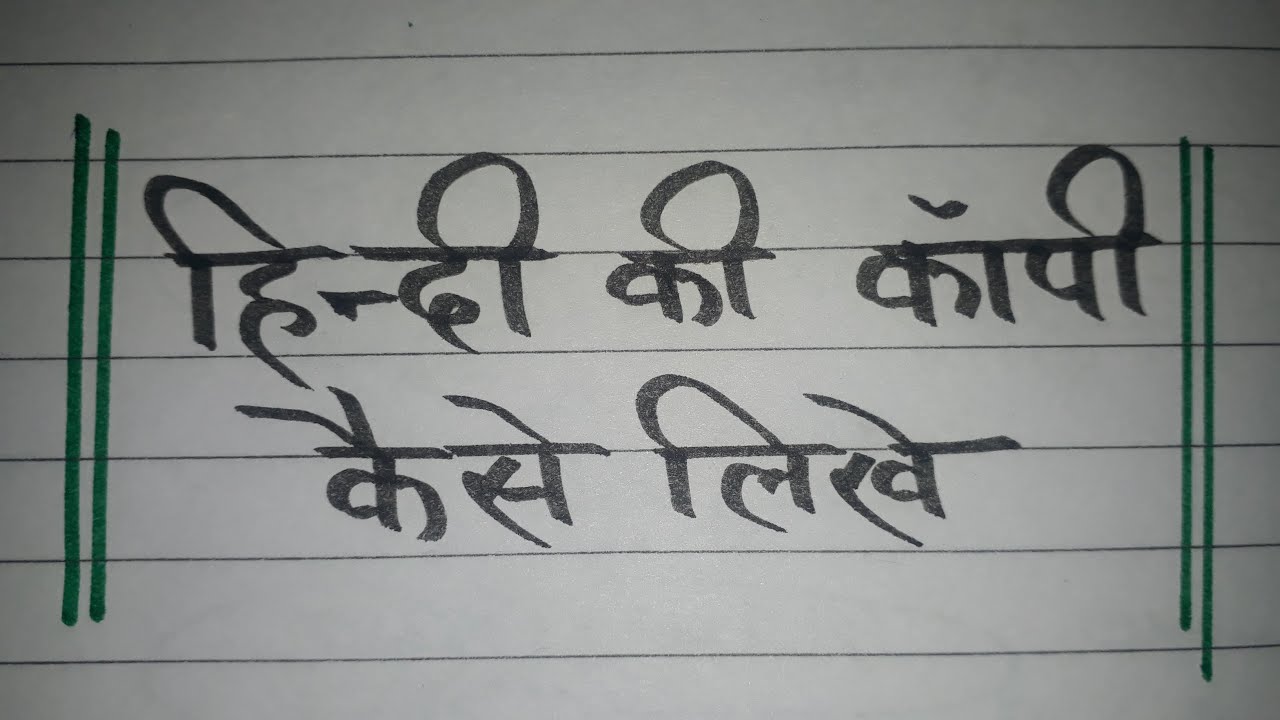 हिन्दी की कॉपी
कैसे लिखे